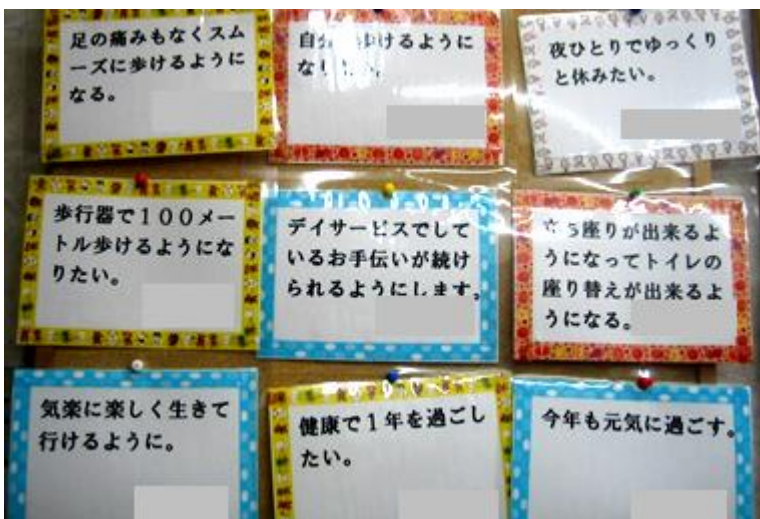 足の痛みもなくスム
ーズに歩けるように
なる。
自分 歩けるように
なり
夜ひとりでゆっくり
と休みたい。
歩行器で１００メー
トル歩けるようにな
りたい。
デイサービスでして
いるお手伝いが続け
られるようにします。
立ち座りが出来るよ
うになってトイレの
座り替えが出来るよ
うになる。
気楽に楽しく生きて
行けるように。
健康で１年を過ごし
たい。
今年も元気に過ごす。